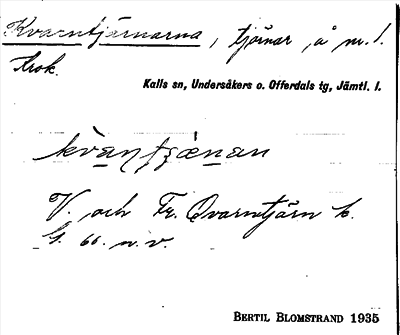 Kvarntjärnarna, tjärnar, å nr. 1.
Krok.
Kalls sn, Undersåkers o. Offerdals tg, Jämtl. l.
V. och Fr. Qvarntjärn k.
G. 66. n. v.
BERTIL BLOMSTRAND 1935